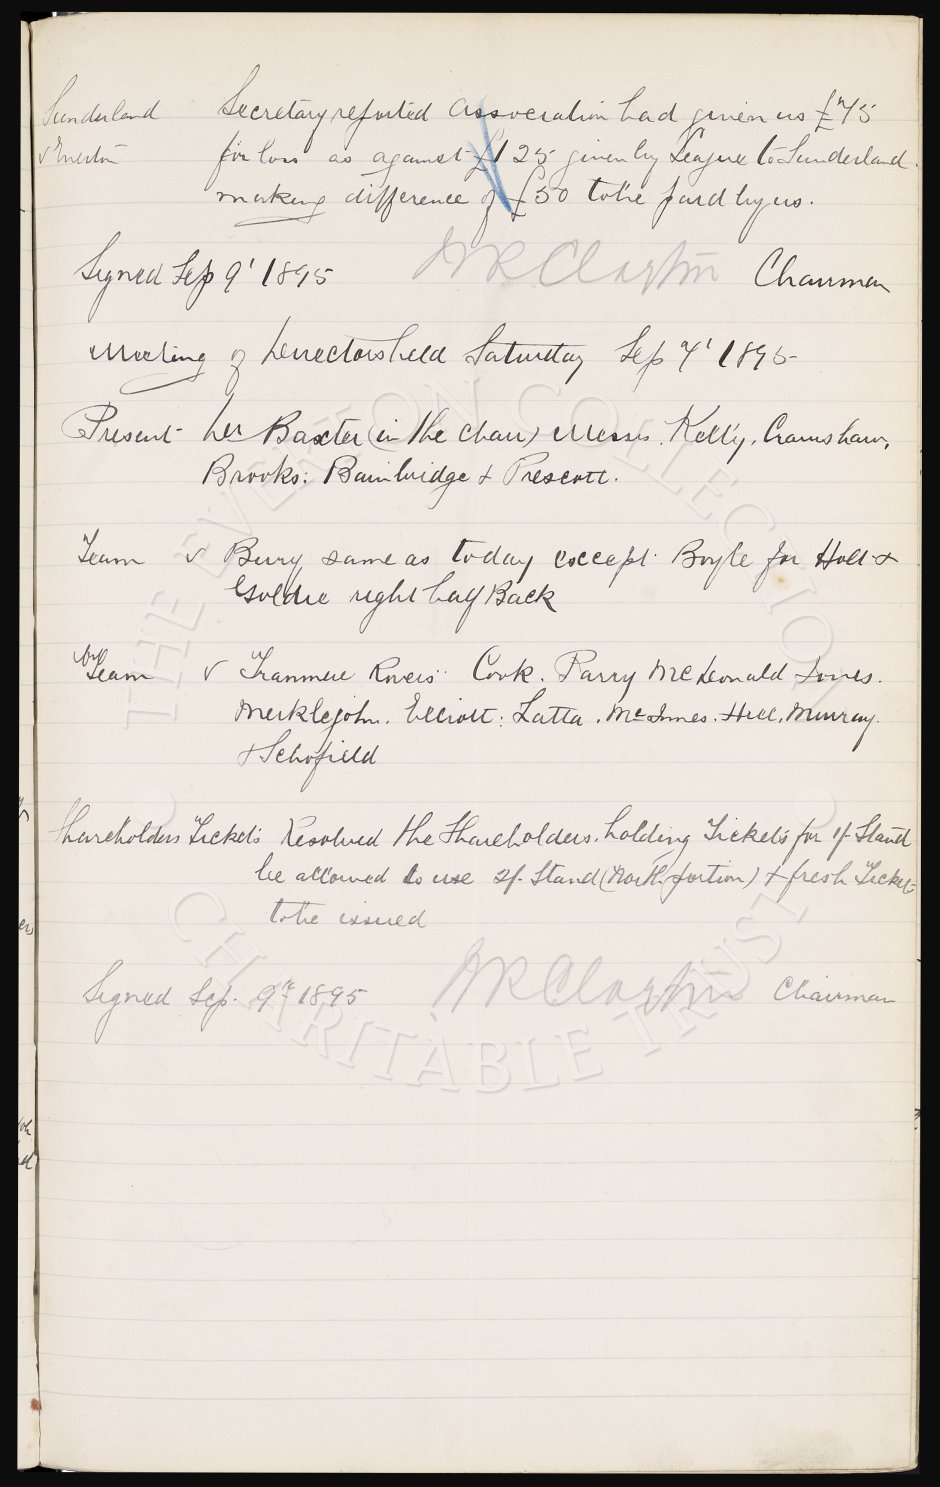 Sunderland Secretary reported Association had given us £75
v Everton for loss as against £125 given by League to Sunderland
making difference of £50 to be paid by us.
Signed Sep 9' 1895 W R Clayton Chairman
Meeting of Directors held Saturday Sep 7' 1895
Present Dr Baxter (in the chair) Messrs. Kelly, Cramshaw,
Brooks: Bainbridge & Prescott.
Team v Bury same as today except Boyle for Holt &
Goldie right half Back
Team v Tranmere Rovers Cook. Parry McDonald Jones.
Meiklejohn. Elliott: Latta. McInnes. Hill. Murray.
& Schofield
Shareholders Tickets Resolved the Shareholders holding Tickets for 1/- Stand
be allowed to use 2/- Stand (North portion) & fresh Ticket
to be issued
Signed Sep. 9th 1895 W R Clayton Chairman
THE EVERTON COLLECTION
CHARITABLE TRUST